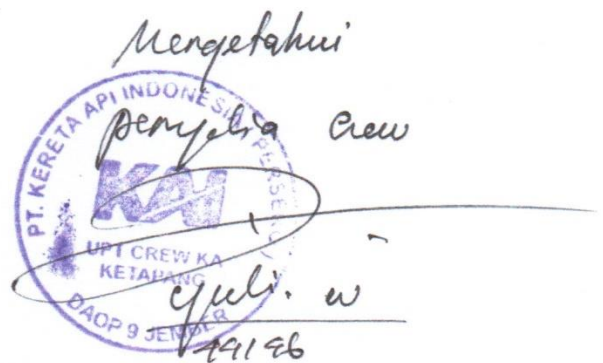 Mengetahui
penyelia Crew
PT. KERETA API INDONESIA (PERSERO)
KAI
UPT CREW KA
KETAPANG
DAOP 9 JEMBER
yuli. w